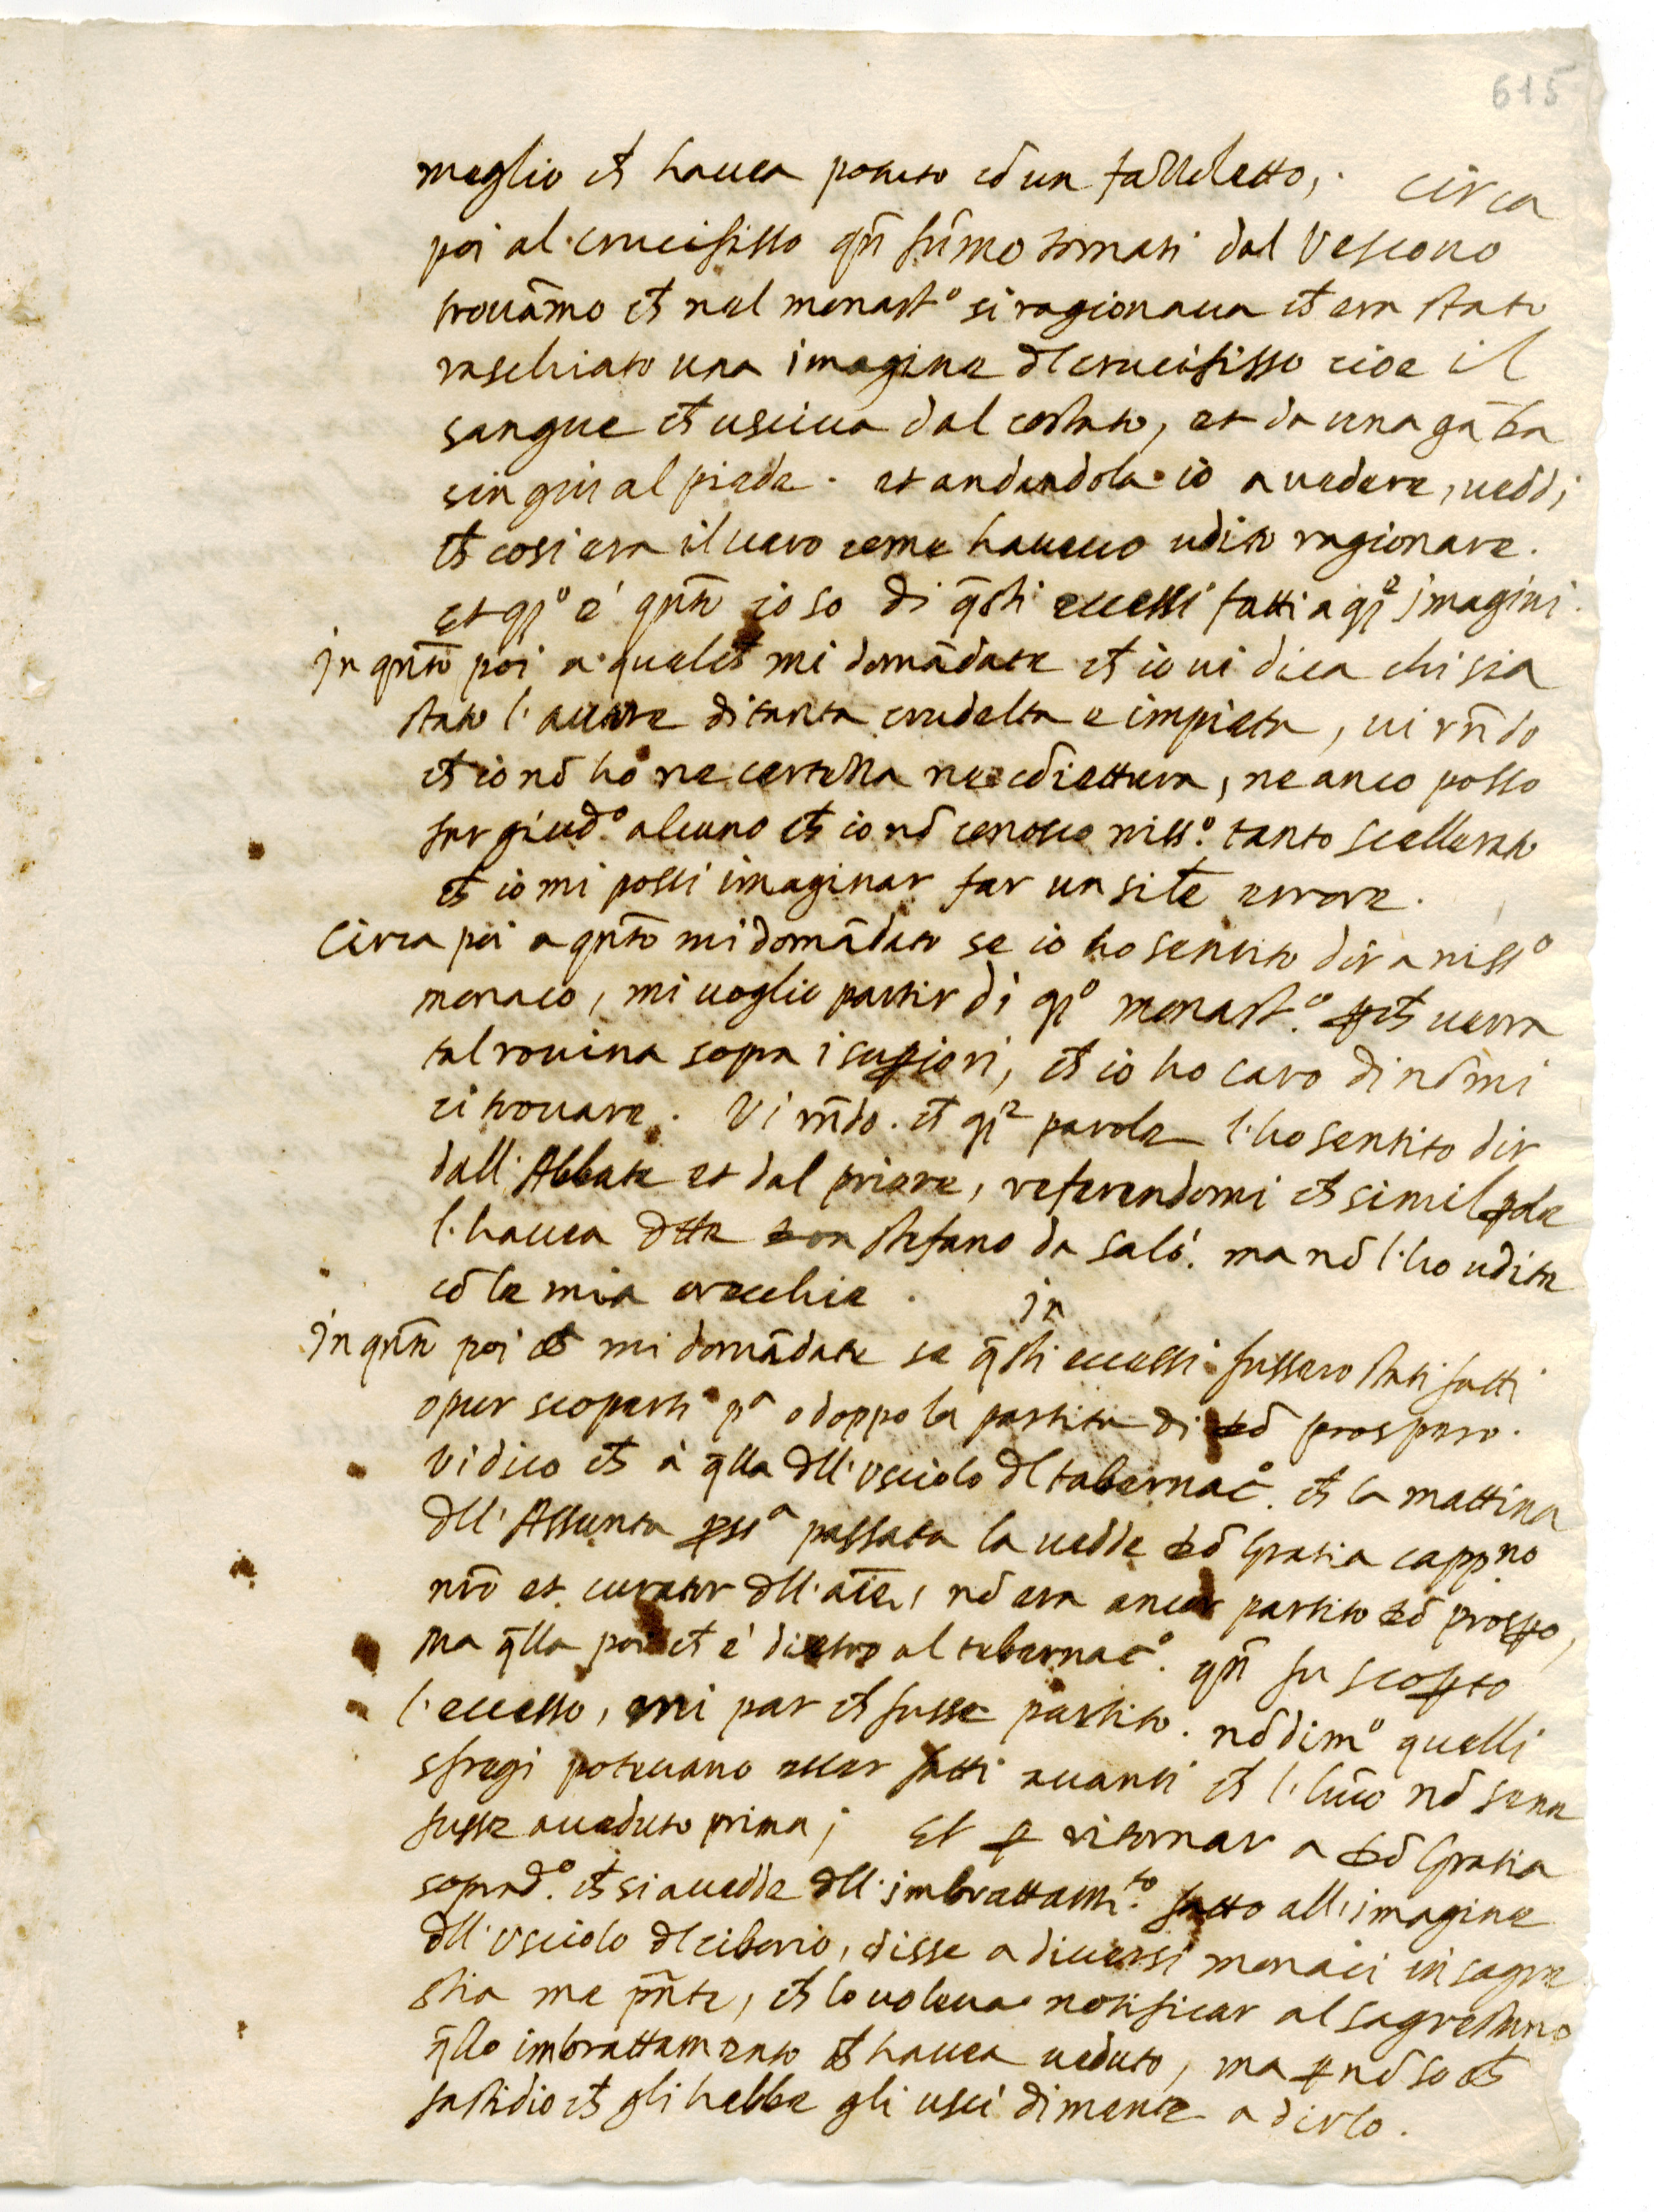 615
meglio ch̄ hauea potuto cō un fazzoletto,. Circa
poi al crucifisso qn̄ fūmo tornati dal Vescouo
trouāmo ch̄ nel monastº si ragionaua ch̄ era stato
raschiato una imagine dl crucifisso cioe il
sangue ch̄ usciua dal costato, et da una gāba
sin giu al piede. et andandola io a uedere, ueddi
ch̄ cosi era il uero come haueuo udito ragionare.
et qº è qn̄to io so di q̄sti eccessi fatti a qe imagini.
In qn̄to poi a quelch̄ mi domādate ch̄ io ui dica chi sia
stato l'autore di tanta crudelta e impieta, ui rn̄do
ch̄ io nō ho ne certezza ne cōiettura, ne anco posso
far giudº. alcuno ch̄ io nō conosco nissº. tanto scellerato
ch̄ io mi possi imaginar far un sil̄e errore.
Circa poi a qn̄to mi domādate se io ho sentito dir a nissº
monaco, mi uoglio partir di qº monastº. ꝑch̄ uerra
tal rouina sopra i suꝑiori, ch̄ io ho caro di nō mi
ci trouare. Vi rn̄do. ch̄ qe parole l'ho sentito dir
dall'Abbate et dal priore, referendomi ch̄ simil ꝑole
l'hauea dette don stefano da salò. ma nō l'ho udite
cō le mia orecchie.
In qn̄to poi ch̄ mi domādate se in q̄sti eccessi fussero stati fatti
opur scoperti pª o doppo la partita di dō prospero.
Vi dico ch̄ à q̄lla dll'usciolo dl tabernac̄º. ch̄ la mattina
dll'Assunta ꝓssª passata la uedde dō Gratia cappno
nrō et curator dll'aīe, nō era ancor partito dō prosꝑo,
Ma q̄lla poi ch̄ è dietro al tabernac̄º. qn̄ fu scoꝑto
l'eccesso, mi par ch̄ fusse partito. nōdimº quelli
sfregi poteuano esser fatti auanti ch̄ l'huō nō sene
fusse aueduto prima; Et ꝑ ritornar a dō Gratia
sopradº. ch̄ si auedde dll'imbrattamto. fatto all'imagine
dll'usciolo dl ciborio, disse a diuersi monaci in sagre
stia me pn̄te, ch̄ lo uoleua notificar al sagrestano
q̄llo imbrattamento ch̄ hauea ueduto, ma ꝑ nō so ch̄
fastidio ch̄ gli hebbe gli uscì di mente a dirlo.